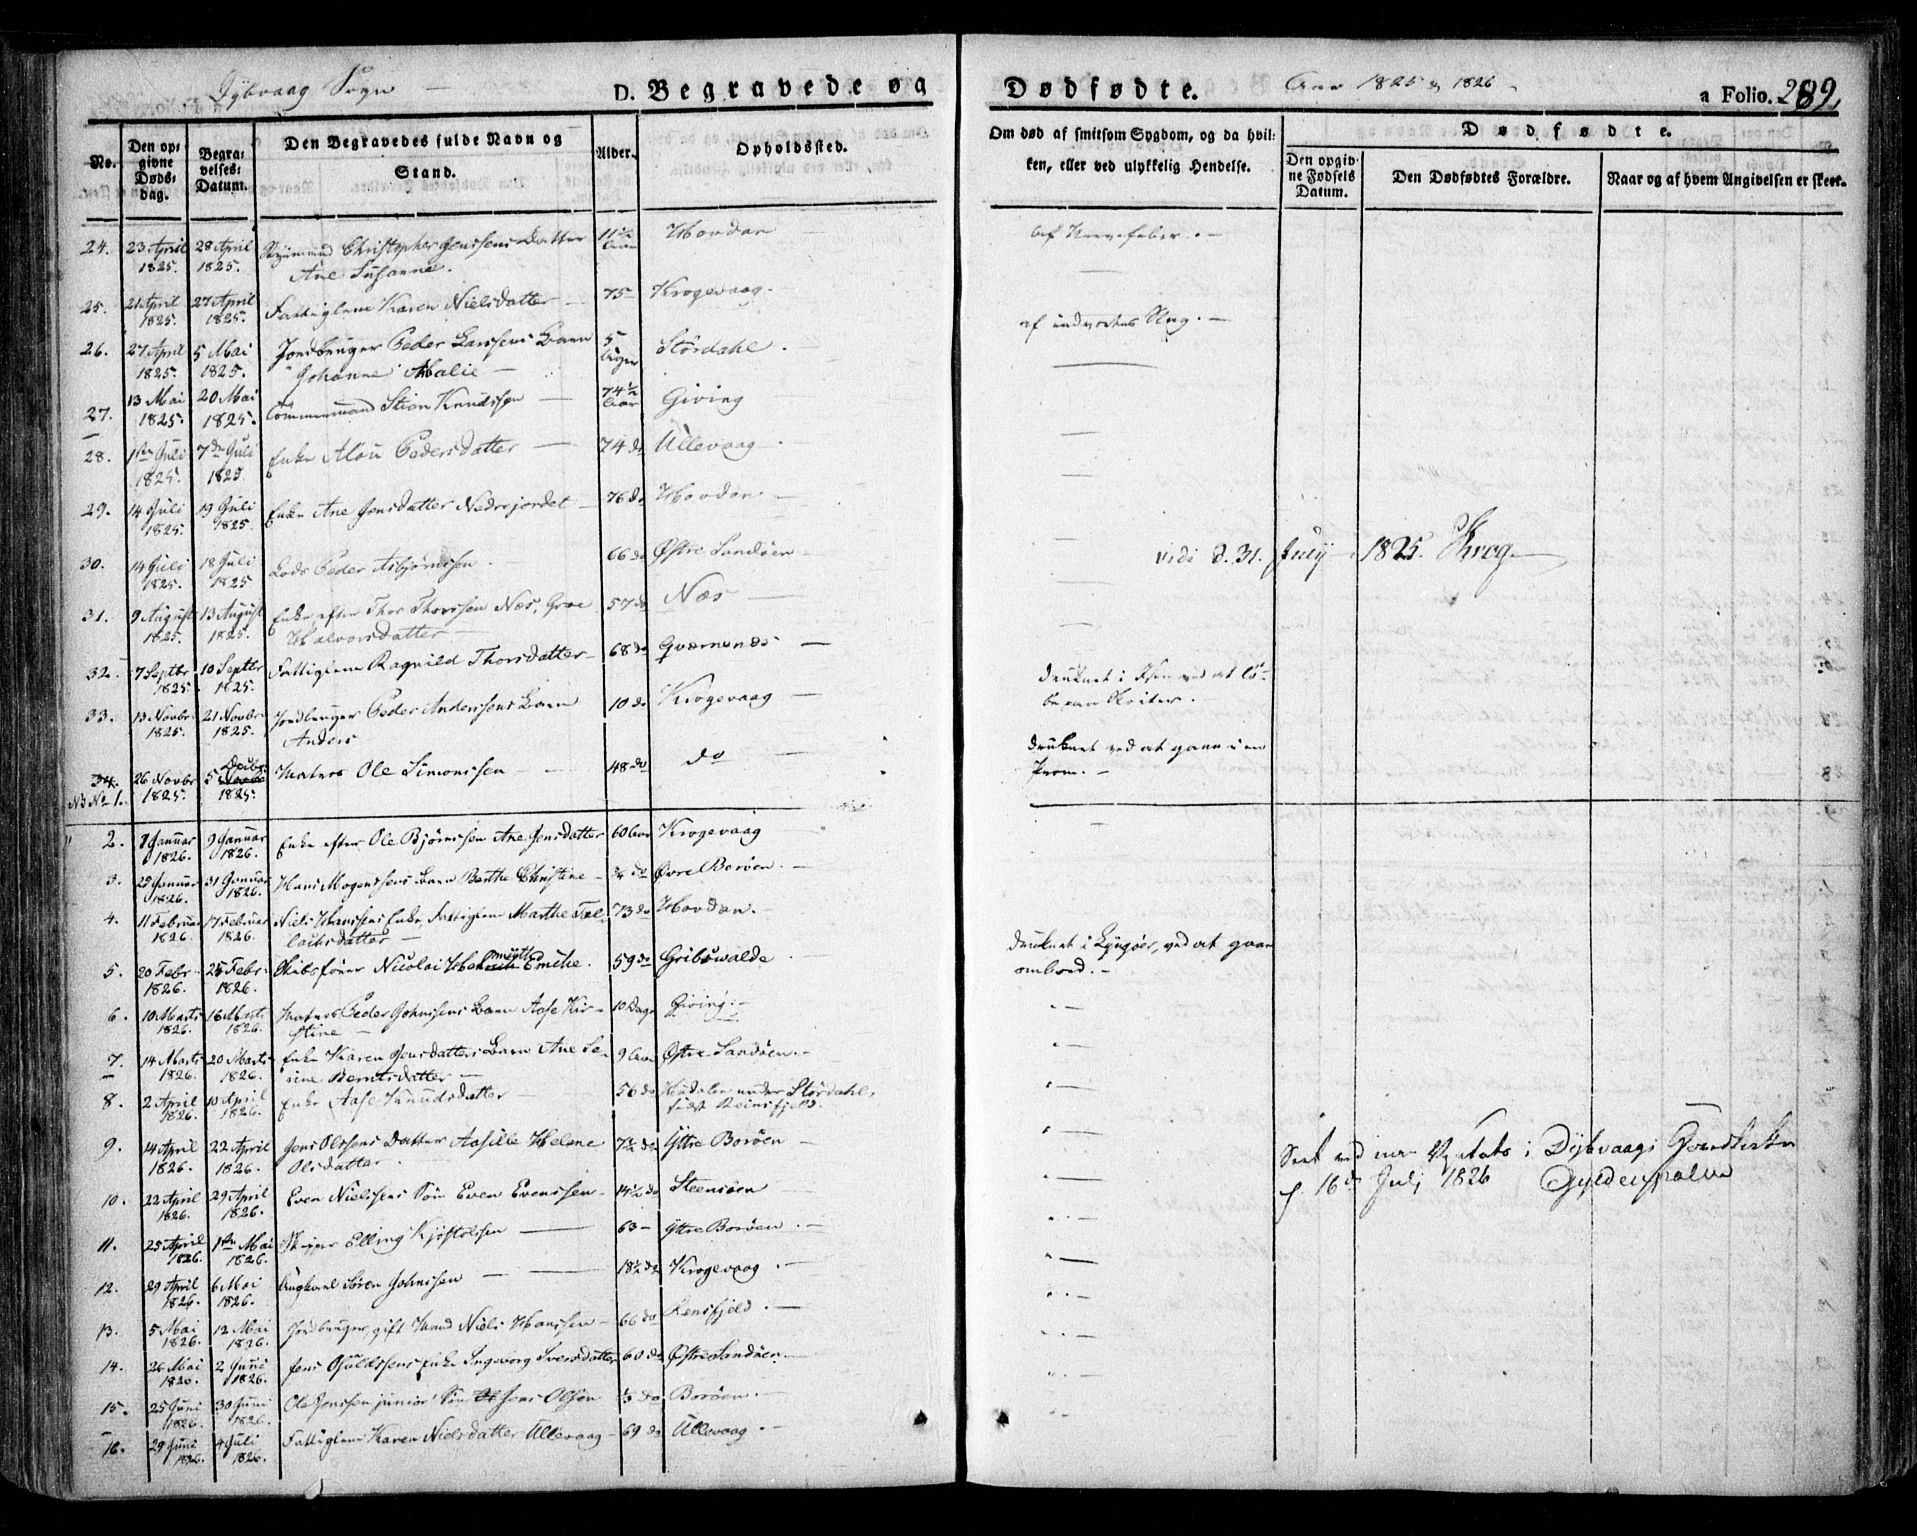 Dybvaag Sogn
D. Begravede og
Dødfødte.
Ano 1825 & 1826
a Folio. 289.
No.
Den op-
givne
Døds-
dag.
Begra-
velses-
Datum.
Den Begravedes fulde Navn og
Stand.
Alder.
Opholdssted.
Om død af smitsom Sygdom, og da hvil-
ken, eller ved ulykkelig Hendelse.
Dødfødte.
Den opgiv-
ne Fødsels
Datum.
Den Dødfødtes Forældre.
Naar og af hvem Angivelsen er skeet.
24. 23 April 28 April Christopher Jenssens Datter 11 1/2 Hovdan
1825. 1825. Ane Susanne. Aar
25. 21 April 27 April Fattiglem Karen Nielsdatter 75 Krogevaag
1825. 1825.
26. 27 April 5 Mai Jordbruger Peder Larssens Barn 5 Stördahl
1825. 1825. Johanne Malie
af indvortes Slag.
27. 13 Mai 20 Mai Stian Knudssen 74 1/2 Giving
1825. 1825. Aar
28. 1ste Juli 7de Juli Enke Alou Pedersdatter 74 do Ullevaag
1825. 1825.
29. 14 Juli 19 Juli Enke Ane Jensdatter Nedrejordet 76 do Hovdan
1825. 1825.
30. 14 Juli 18 Juli Lods Peder Asbjörnssen 66 do Østre Sandöen
1825. 1825
vidi d. 31. July 1825. Krog
31. 9 August 13 August Enke efter Thor Thorssen Næs, Groe 57 do Næs
1825. 1825. Halvorsdatter
32. 7 Septbr 10 Septbr Fattiglem Ragnild Thorsdatter 68 do Qværnenæs
1825. 1825.
33. 13 Novbr 21 Novbr Jordbruger Peder Anderssens Barn 10 do Krogevaag
1825. 1825. Anders
druknet i Isen ved at lö-
be paa Skøiter.
34. 26 Novbr 5 Decbr Matros Ole Simonssen 48 do do
NB No 1. 1825. 1825.
druknet ved at gaae i en
Pram.
2. 8 Januar 9 Januar Enke efter Ole Bjørnssen Ane Jensdatter 60 Aar Krogevaag
1826. 1826.
3. 25 Januar 31 Januar Hans Mogenssens Barn Berthe Christine 3/4 do Øvre Boröen
1826. 1826.
4. 11 Februar 17 Februar Niels Hanssens Enke, Fattiglem Marthe Tel- 73 do Hovdan.
1826. 1826. lachsdatter
5. 20 Febr 25 Febr Skibsfører Nicolai 59 do Gribswalde
1826. 1826.
druknet i Lyngöer, ved at gaae
ombord.
6. 10 Marts 16 Marts Matros Peder Johnssens Barn Aase Kir- 10 Dage Giving.
1826. 1826. stine
7. 14 Marts 20 Marts Enke Karen Jensdatters Barn Ane Se- 9 Aar Østre Sandöen.
1826. 1826. rine Berntsdatter
8. 2 April 10 April Enke Aase Knudsdatter 56 do under Stördahl,
1826. 1826. født Reinsfjeld.
9. 14 April 22 April Jens Olssens Datter Aasille Helene 7 1/2 do Yttre Boröen
1826. 1826. Olsdatter
Seet ved min Visitats i Dybvaags Hovedkirke
d. 16de Julj 1826 Gyldenpalm
10. 22 April 29 April Even Nielssens Sön Even Evenssen 14 1/2 do Steensöen
1826. 1826.
11. 25 April 1ste Mai Skipper Elling Kjöstolssen 63 Yttre Boröen.
1826. 1826.
12. 29 April 6 Mai Ungkarl Sören Johnssen 18 1/2 do Krogevaag.
1826. 1826.
13. 5 Mai 12 Mai Jordbruger, gift Mand Niels Hanssen 66 do Rensfjeld.
1826. 1826.
14. 26 Mai 2 Juni Jens Osuldssens Enke Ingeborg Iversdatter 60 do Østre Sandöen.
1826. 1826.
15. 25 Juni 30 Juni Ole Jenssen junior Søn Jens Olssøn 1/3 do Boröen.
1826. 1826.
16. 29 Juni 4 Juli Fattiglem Karen Nielsdatter Ullevaag 69 do Ullevaag
1826. 1826.